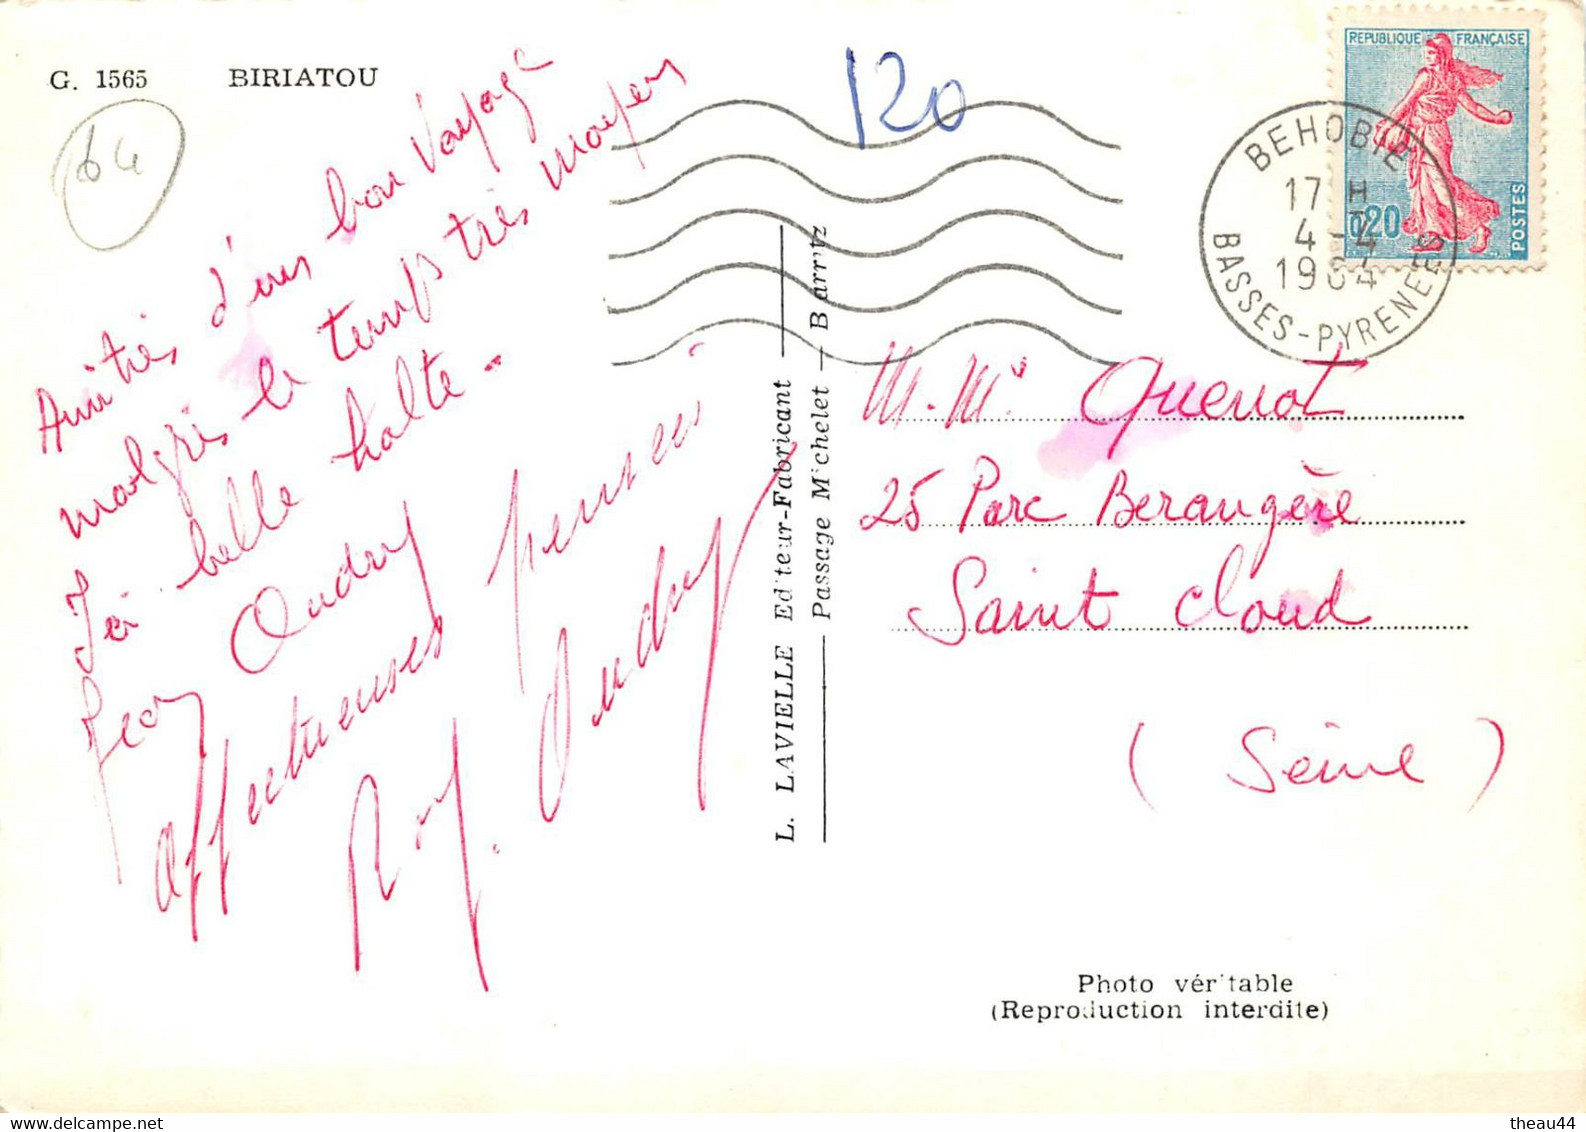 G. 1565 BIRIATOU
64
120
REPUBLIQUE FRANÇAISE
0,20
POSTES
BEHOBIE
17 H
4-4
1964
BASSES-PYRENEES
Amitiés d'un bon voyage
malgrés le temps très moyen
Ici belle halte.
Jean Oudry
affectueuses pensées
Ray. Oudry
L. LAVIELLE Editeur-Fabricant
Passage Michelet — Biarritz
M. Me Quenot
25 Parc Berangère
Saint Cloud
(Seine)
Photo véritable
(Reproduction interdite)
theau44